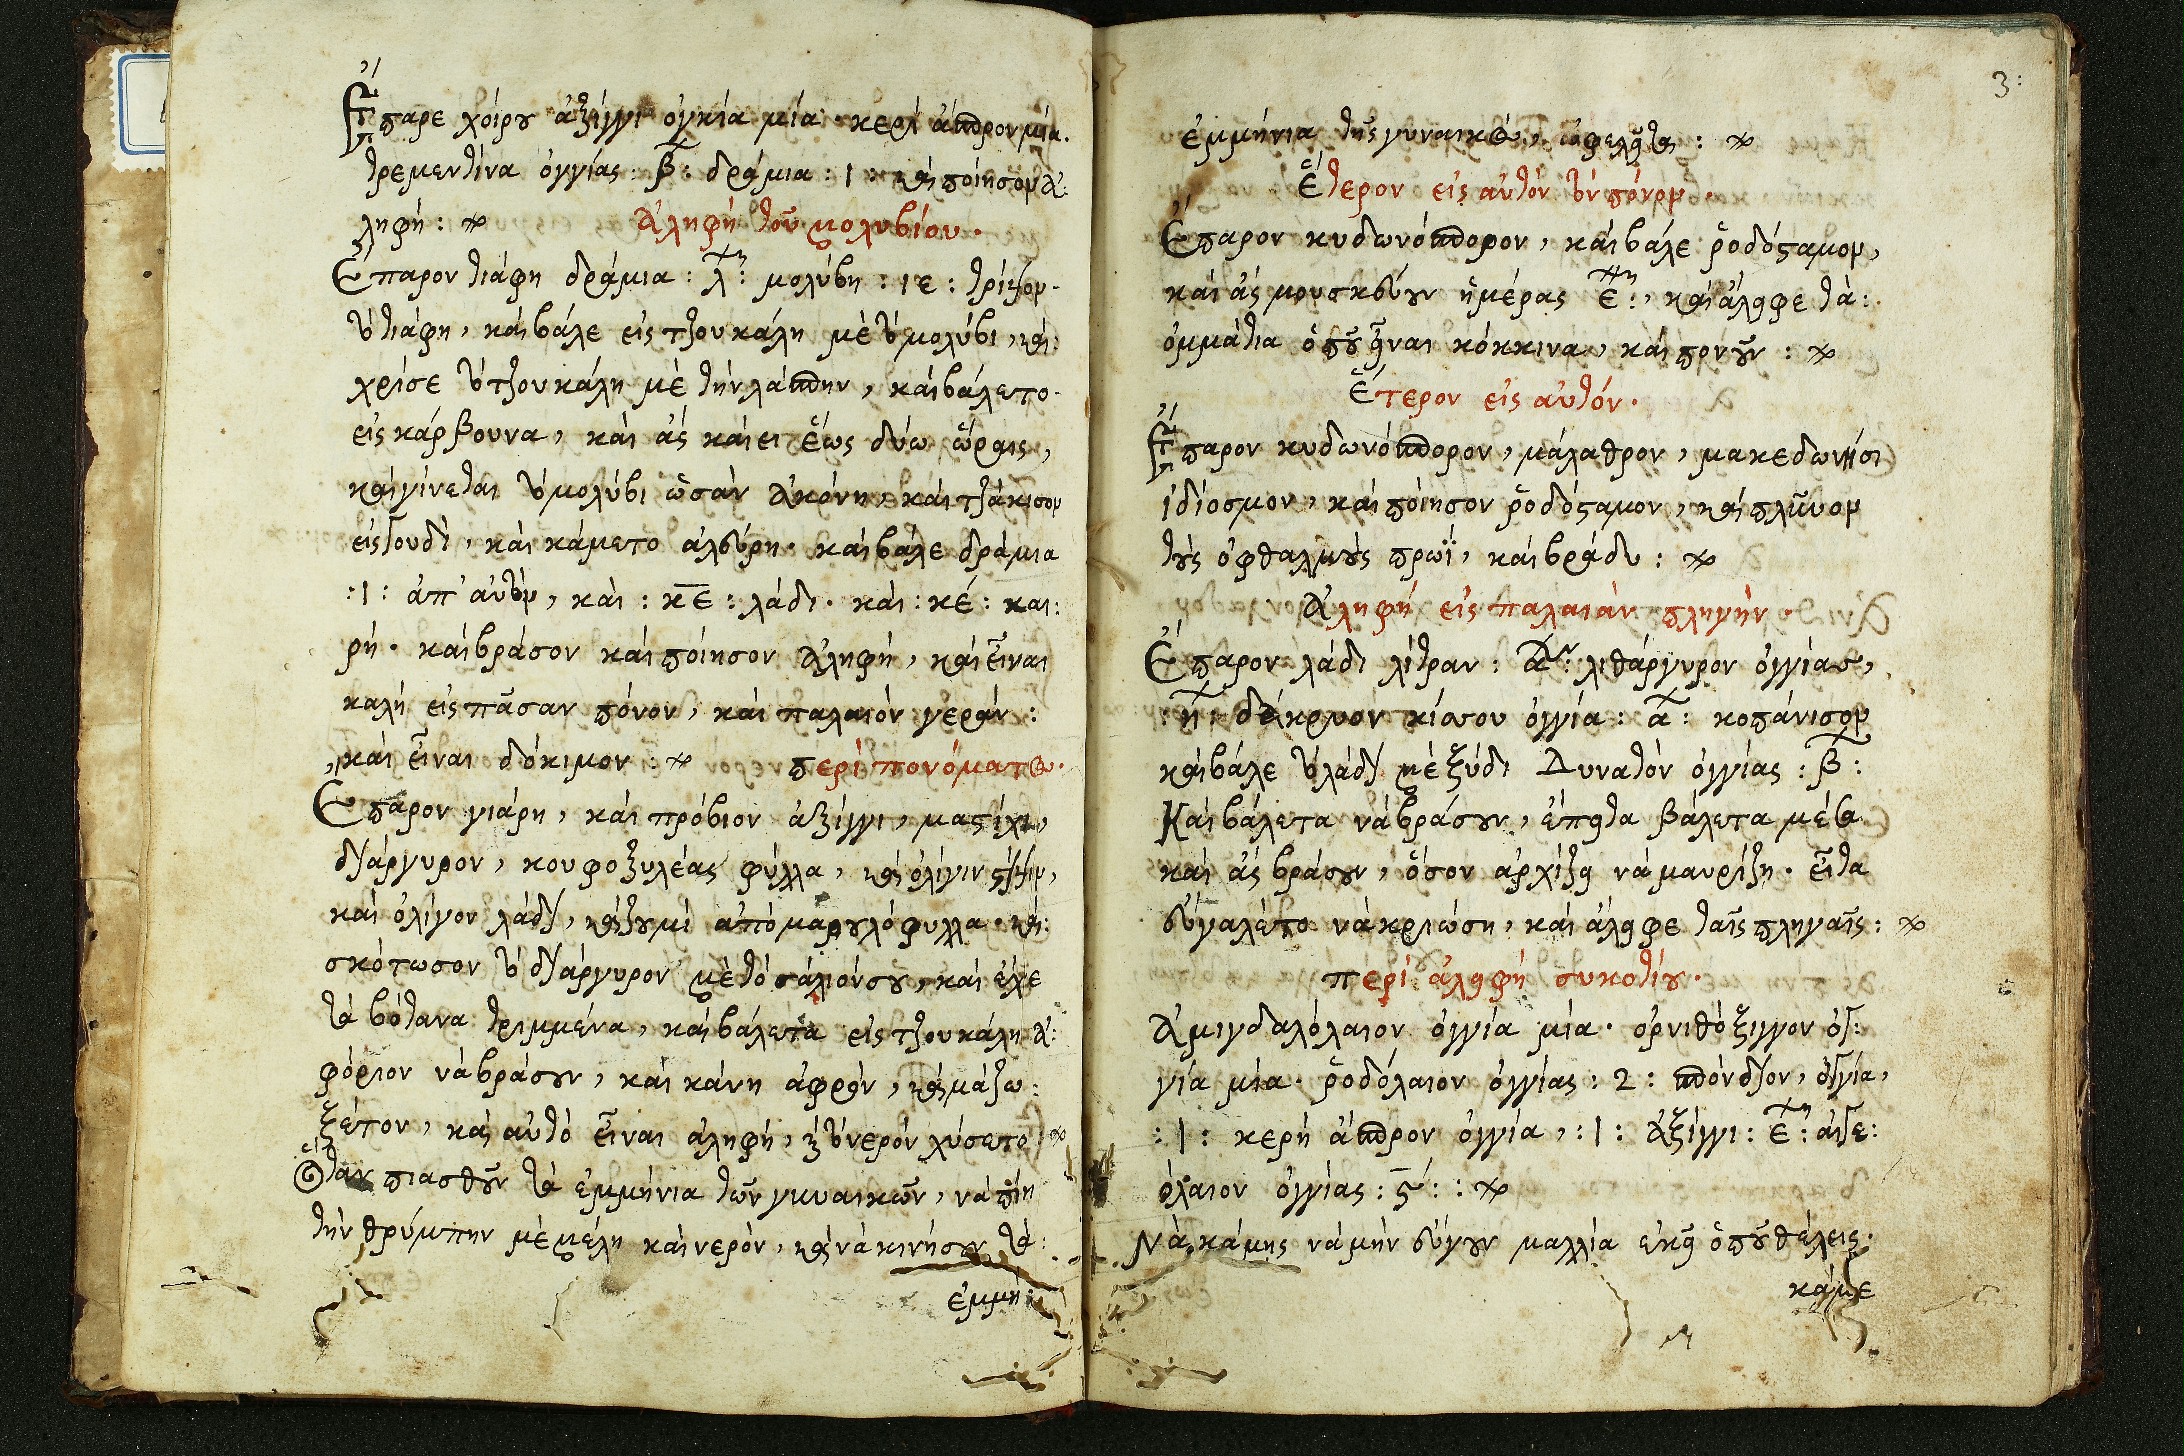 Ἔπαρε χοίρου ἀξίγγι οὐγκία μία· κερὶ ἄσπρον μία.
τρεμεντίνα ὀγγίας : β : δράμια : 1 : καὶ ποίησον ἀ:
ληφή :
Ἀληφὴ τοῦ μολυβίου.
Ἔπαρον τιάφη δράμια : λ : μολύβη : ιε : τρίψον
τὸ τιάφη, καὶ βάλε εἰς τζουκάλη μὲ τὸ μολύβι, καὶ:
χρίσε τὸ τζουκάλη μὲ τὴν λάσπην, καὶ βάλετο
εἰς κάρβουνα, καὶ ἂς κάιει ἕως δύω ὥραις,
καὶ γίνεται τὸ μολύβι ὡσὰν ἀκόνη, καὶ τζάκισον
εἰς γουδὶ, καὶ κάμετο ἀλεύρη· καὶ βάλε δράμια
: 1 : ἀπ' αὐτὸν, καὶ : κε : λάδι· καὶ : κε : και:
ρή· καὶ βράσον καὶ ποίησον ἀληφή, καὶ εἶναι
καλὴ εἰς πᾶσαν πόνον, καὶ παλαιὸν γεράν :
καὶ εἶναι δόκιμον :
περὶ πονόματω.
Ἔπαρον γιάρη, καὶ πρόβιον ἀξίγγι, μαστίχι,
διάργυρον, κουφοξυλέας φύλλα, καὶ ὀλίγιν στύψιν,
καὶ ὀλίγον λάδι, καὶ ζουμὶ ἀπὸ μαρουλόφυλλα· καὶ:
σκότωσον τὸ διάργυρον μὲ τὸ σάλιόν σου, καὶ ἔχε
τὰ βότανα τριμμένα, καὶ βάλετα εἰς τζουκάλη ἀ:
φόριον νὰ βράσουν, καὶ κάνη ἀφρὸν, καὶ μάζω:
ξέτον, καὶ αὐτὸ εἶναι ἀληφή, καὶ τὸ νερὸν χύσετο
Ὅταν πιασθοῦν τὰ ἐμμήνια τῶν γκυναικῶν, νὰ πίη
τὴν θρύμπην μὲ μέλη καὶ νερὸν, καὶ νὰ κινήσουν τὰ:
ἐμμή:
3:
ἐμμήνια τῆς γυναικὸς, ὠφελεῖται :
Ἕτερον εἰς αὐτὸν τὸν πόνον.
Ἔπαρον κυδωνόσπορον, καὶ βάλε ῥοδόσταμον,
καὶ ἂς μουσκεύουν ἡμέρας ε :, καὶ ἄλειφε τὰ:
ὀμμάτια ὁποῦ εἶναι κόκκινα, καὶ πονοῦν :
Ἕτερον εἰς αὐτόν.
Ἔπαρον κυδωνόσπορον, μάλαθρον, μακεδωνήσι
ἰδίοσμον, καὶ ποίησον ῥοδόσταμον, καὶ πλῦνον
τοὺς ὀφθαλμοὺς πρωῒ, καὶ βράδυ :
Ἀληφὴ εἰς παλαιὰν πληγὴν.
Ἔπαρον λάδι λίτραν : α : λιθάργυρον ὀγγίας,
: η : δάκρυον κίσσου ὀγγία : α : κοπάνισον
καὶ βάλε τὸ λάδι μὲ ξύδι Δυνατὸν ὀγγίας : β :
Καὶ βάλετα νὰ βράσουν, ἔπειτα βάλετα μέσα
καὶ ἂς βράσουν, ὅσον ἀρχίζει νὰ μαυρίζη· εἶτα
εὔγαλέτο νὰ κριώση, καὶ ἄλειφε ταῖς πληγαῖς :
περὶ ἀλειφὴ συκοτίου.
Ἀμιγδαλόλαιον ὀγγία μία· ὀρνιθόξιγγον ὀγ:
γία μία· ῥοδόλαιον ὀγγίας : 2 : σπόνδιον, ὀγγία,
: 1 : κερὴ ἄσπρον ὀγγία, : 1 : ἀξίγγι : ε : αἰγε:
όλαιον ὀγγίας : ς : :
Νὰ κάμης νὰ μὴν εὔγουν μαλλία ἐκεῖ ὁποῦ θέλεις.
κάμε